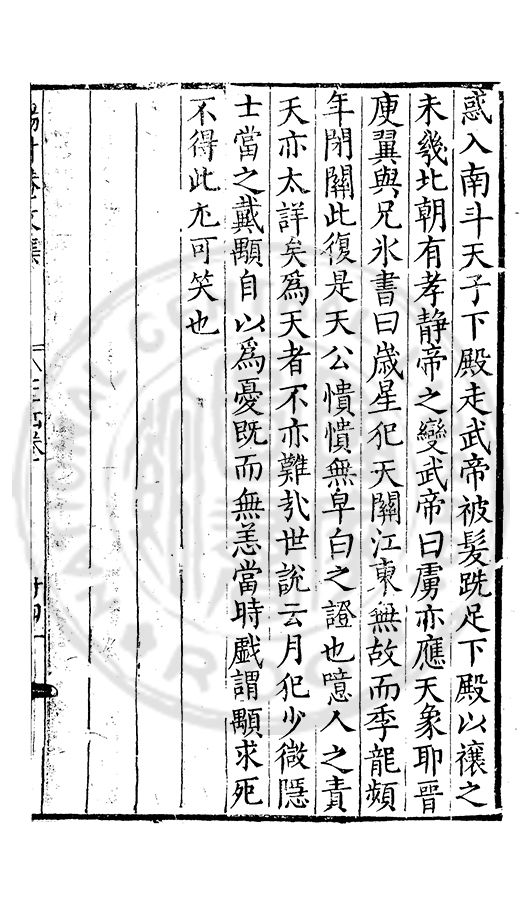 惑入南斗天子下殿走武帝被髮跣足下殿以禳之
未幾北朝有孝静帝之變武帝曰虜亦應天象耶晋
庾翼與兄氷書曰歳星犯天關江東無故而季龍頻
年閉關此復是天公憒憒無皁白之證也噫人之責
天亦太詳矣爲天者不亦難㢤世說云月犯少微隱
士當之戴顒自以爲憂既而無恙當時戲謂顒求死
不得此尤可笑也